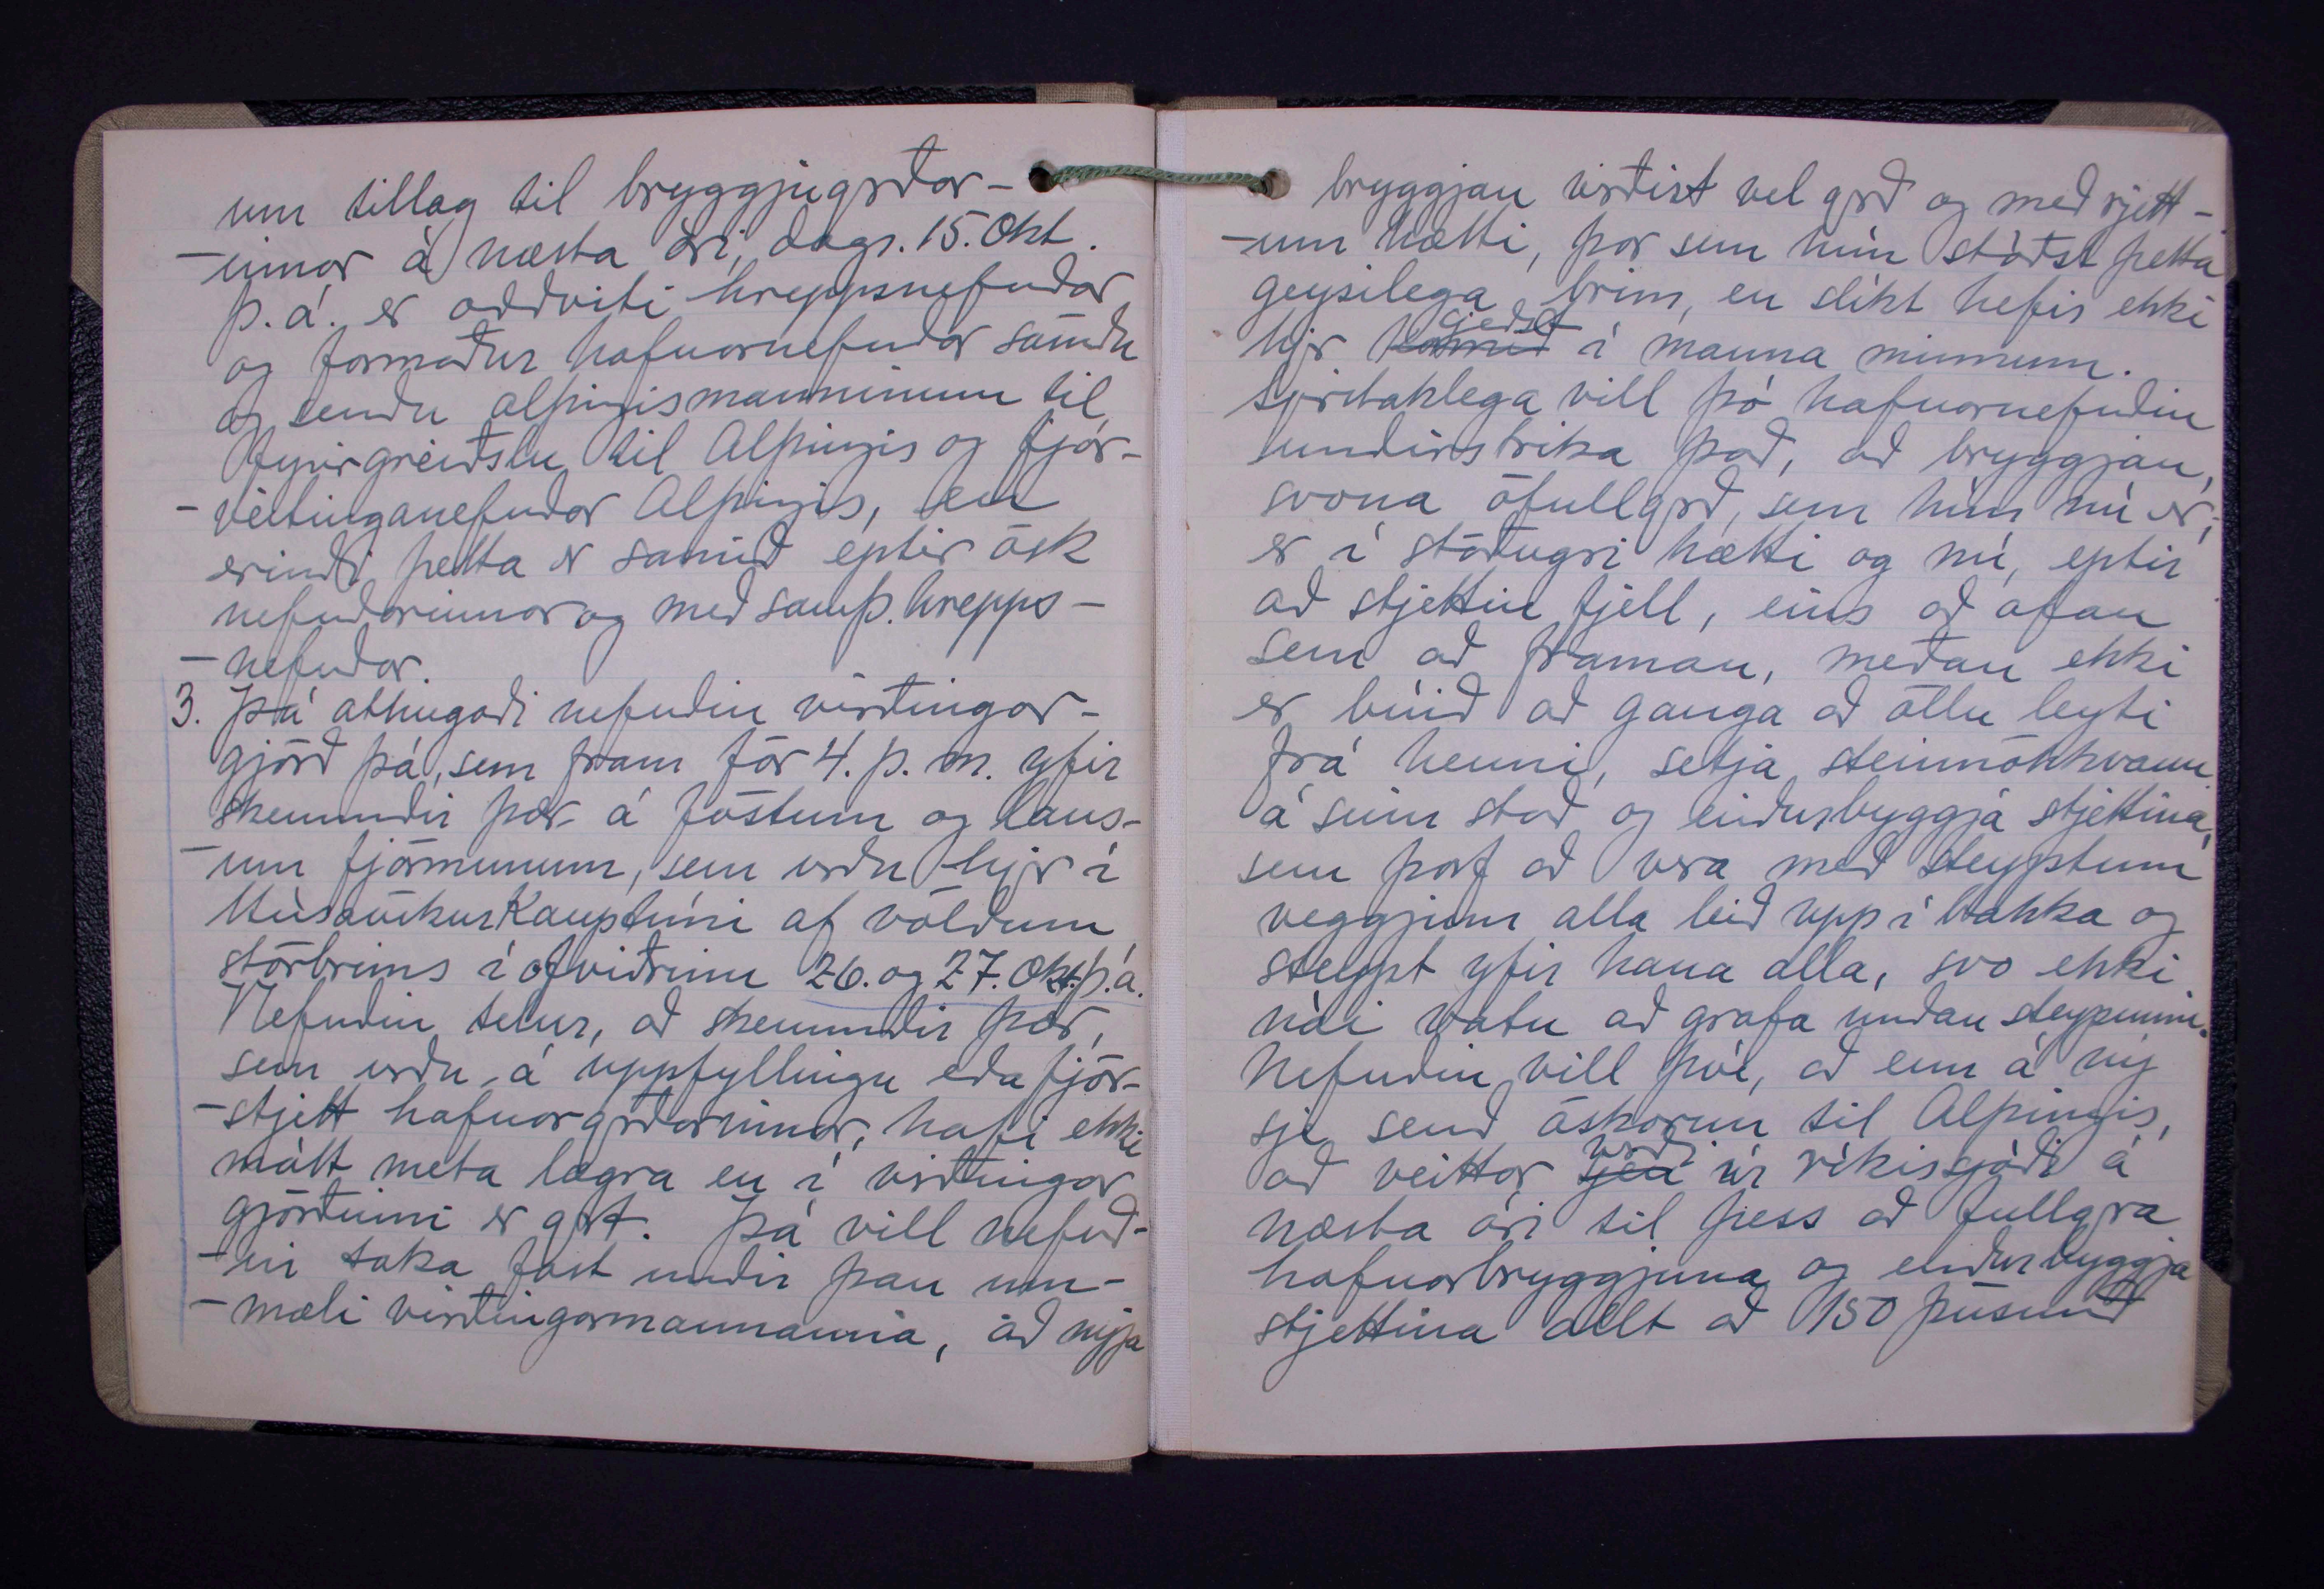 um tillag til bryggjugjörðar-
-innar á næsta ári, dags. 15. Okt.
þ. á. er oddviti hreppsnefndar
og formaður hafnarnefndar sömdu
og sendu alþingismanninum til
fyrirgreiðslu til Alþingis og fjár-
-veitinganefndar Alþingis, en
erindi þetta er samið eptir ósk
nefndarinnar og með samþ. hrepps-
-nefndar.
3. Þá athugaði nefndin virðingar-
gjörð þá, sem fram fór 4. þ. m. yfir
skemmdir þær á föstum og laus-
-um fjármunum, sem urðu hjer í
Húsavíkurkauptúni af völdum
stórbrims í ofviðrinu 26. og 27. Okt. þ. á.
Nefndin telur, að skemmdir þær,
sem urðu á uppfyllingu eða fjör-
-stjett hafnargerðarinnar, hafi ekki
mátt meta lægra en í virðingar
gjörðinni er gert. Þá vill nefnd-
-in taka fast undir þau um-
-mæli virðingarmannanna, að nýja
bryggjan virðist vel gerð og með rjett-
-um hætti, þar sem hún stóðst þetta
geysilega brim, en slíkt hefir ekki
skeðst
hjer komið í manna minnum.
Sjerstaklega vill þó hafnarnefndin
undirstrika það, að bryggjan,
svona ófullgerð, sem hún nú er,
er í stöðugri hætti og nú, eptir
að stjettin fjell, eins að ofan
sem að framan, meðan ekki
er búið að ganga að öllu leyti
frá henni, setja steinnökkvann
á sinn stað og endurbyggja stjettina,
sem þarf að vera með steyptum
veggjum alla leið upp í bakka og
steypt yfir hana alla, svo ekki
nái vatn að grafa undan steypunni.
Nefndin vill því, að enn á ný
sje send áskorun til Alþingis,
verði
að veittar sjeu úr ríkissjóði á
næsta ári til þess að fullgera
hafnarbryggjuna og endurbyggja
stjettina allt að 150 þúsund